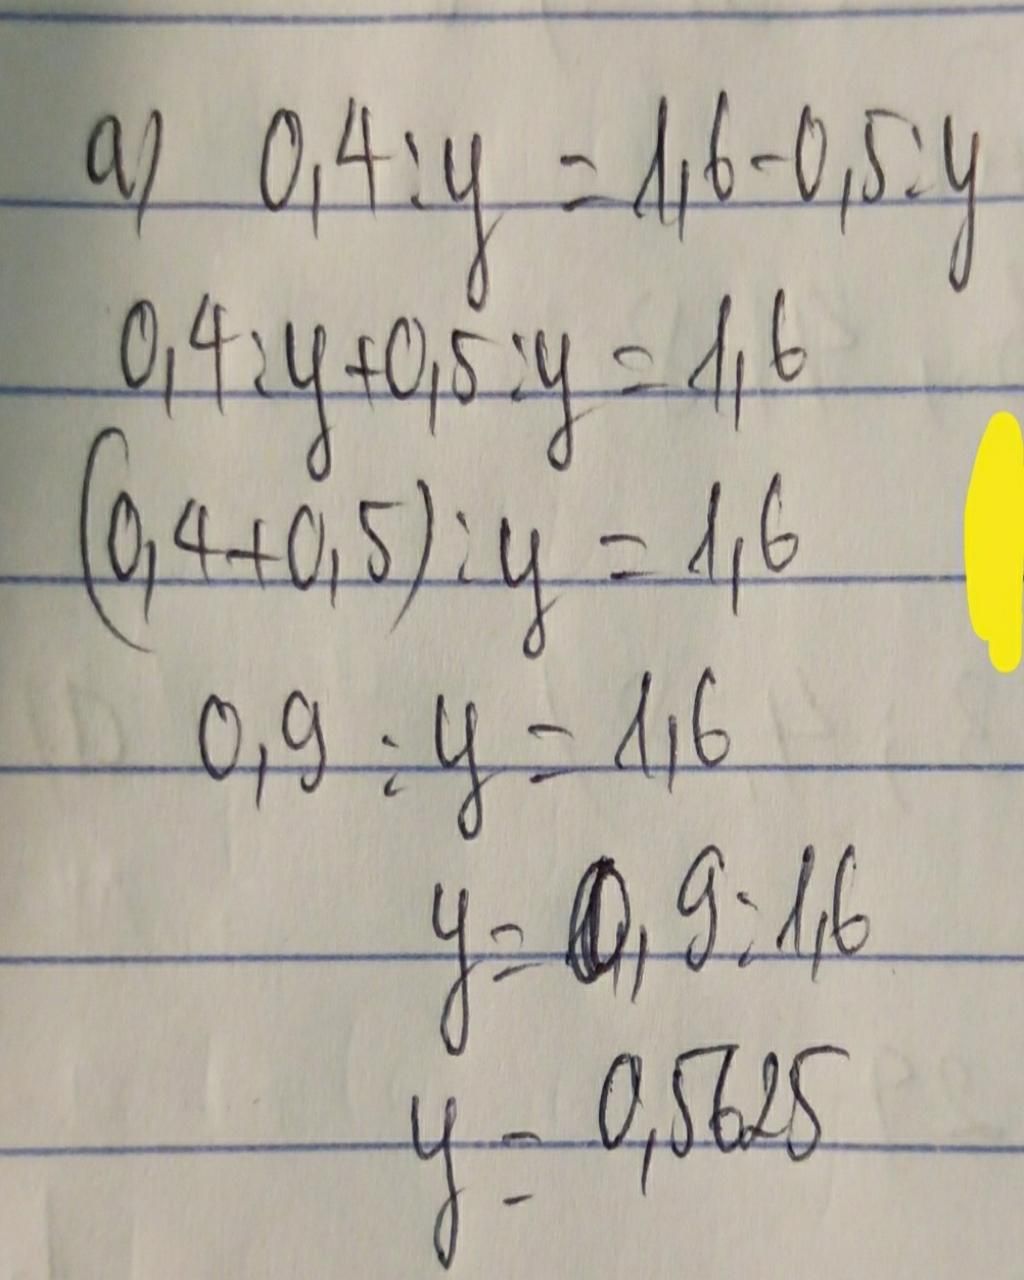 a) 0,4:y = 1,6-0,5:y
0,4:y+0,5:y = 1,6
(0,4+0,5):y = 1,6
0,9:y = 1,6
y = 0,9:1,6
y = 0,5625